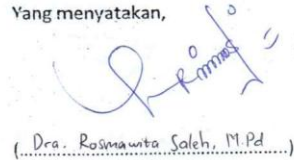 Yang menyatakan,
(Dra. Rosmawita Saleh, M.Pd)